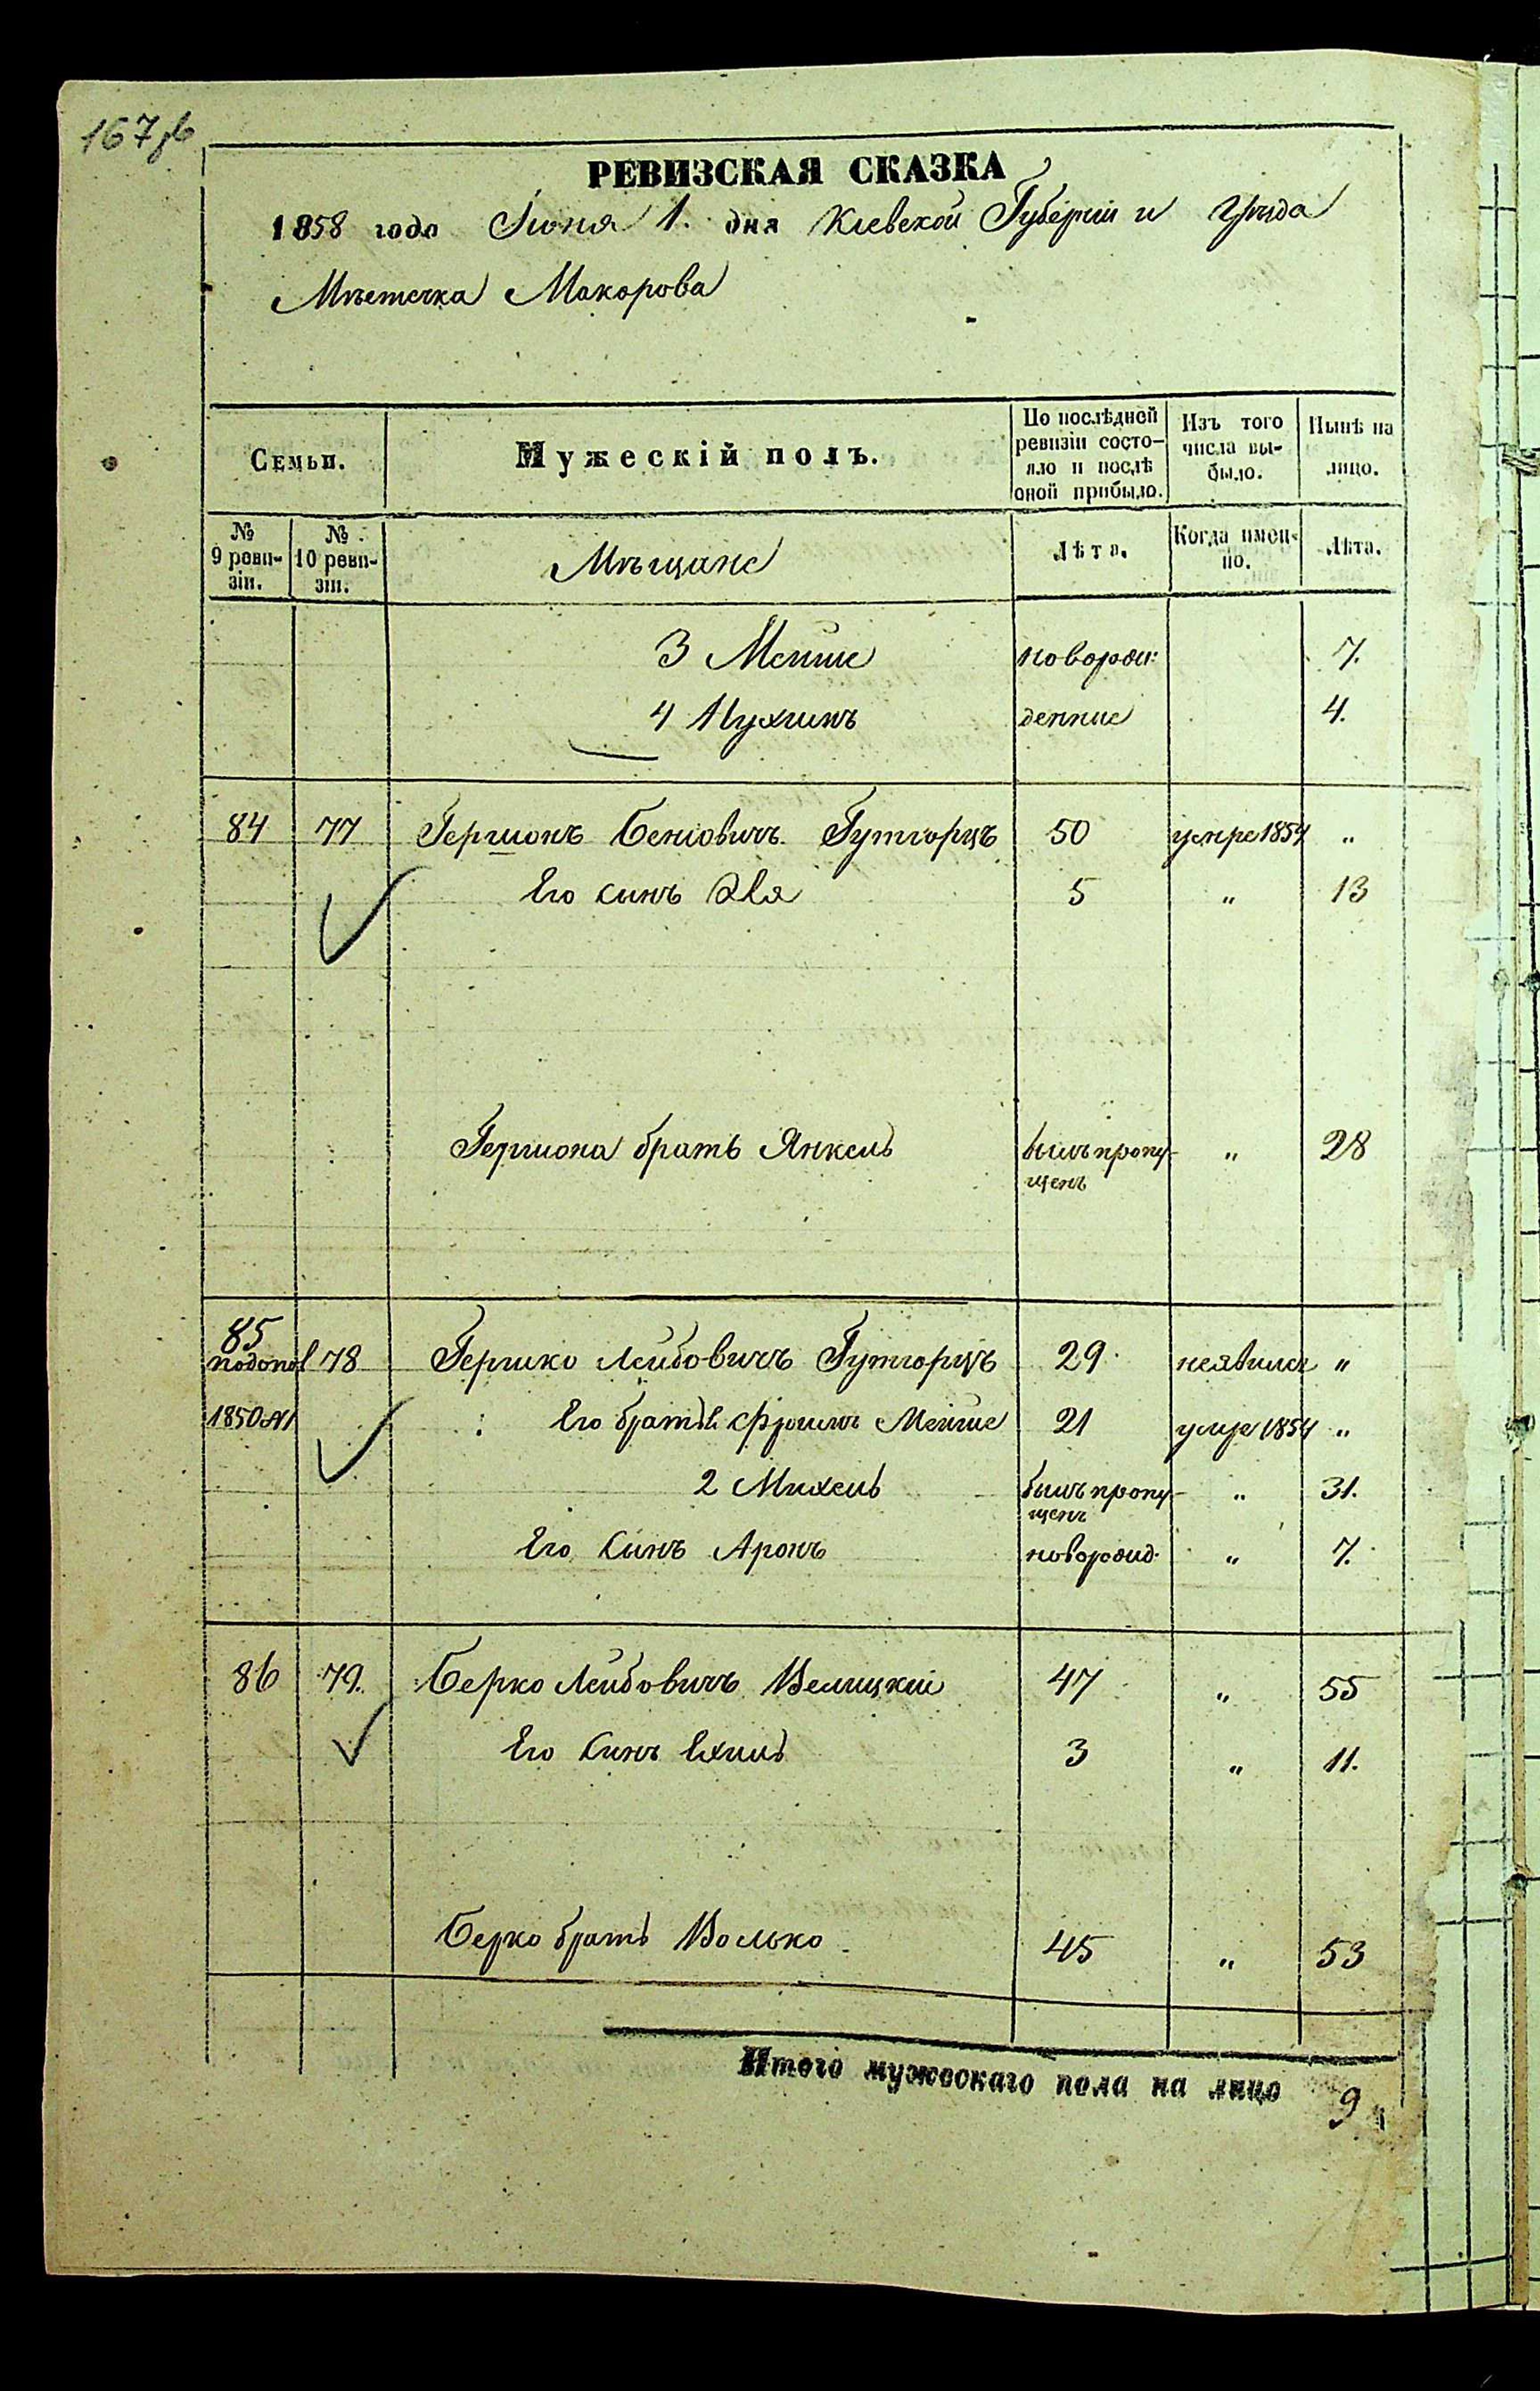 167об
РЕВИЗСКАЯ СКАЗКА
1858 года Іюня 1. дня Кіевской Губерніи и Уѣзда
Мѣстечка Макорова
Семьи.
Мужескій полъ.
По послѣдней ревизіи состо-
яло и послѣ оной прибыло.
Изъ того числа вы-
было.
Нынѣ на лицо.
№ 9 реви-
зіи.
№ 10 реви-
зіи.
Мѣщане
Лѣта.
Когда имен-
но.
Лѣта.
3 Мейше новорож: 7.
4 Нухимъ денные 4.
84 77 Гершонъ Беніовичъ Гутгорцъ 50 умре 1854 "
Его сынъ Эля 5 " 13
Гершона братъ Янкель былъ пропу- " 28
щенъ
85 
подопол 78 Гершко Лейбовичъ Гутгорцъ 29 неявился "
1850 Его братья Мейше 21 умре 1854 "
2 Михель былъ пропу- " 31.
щенъ
Его Сынъ Аронъ новорожд. " 7.
86 79. Берко Лейбовичъ Велицкій 47 " 55
Его Сынъ Ехиль 3 " 11.
Берко братъ Волько 45 " 53
Итого мужескаго пола на лицо 9